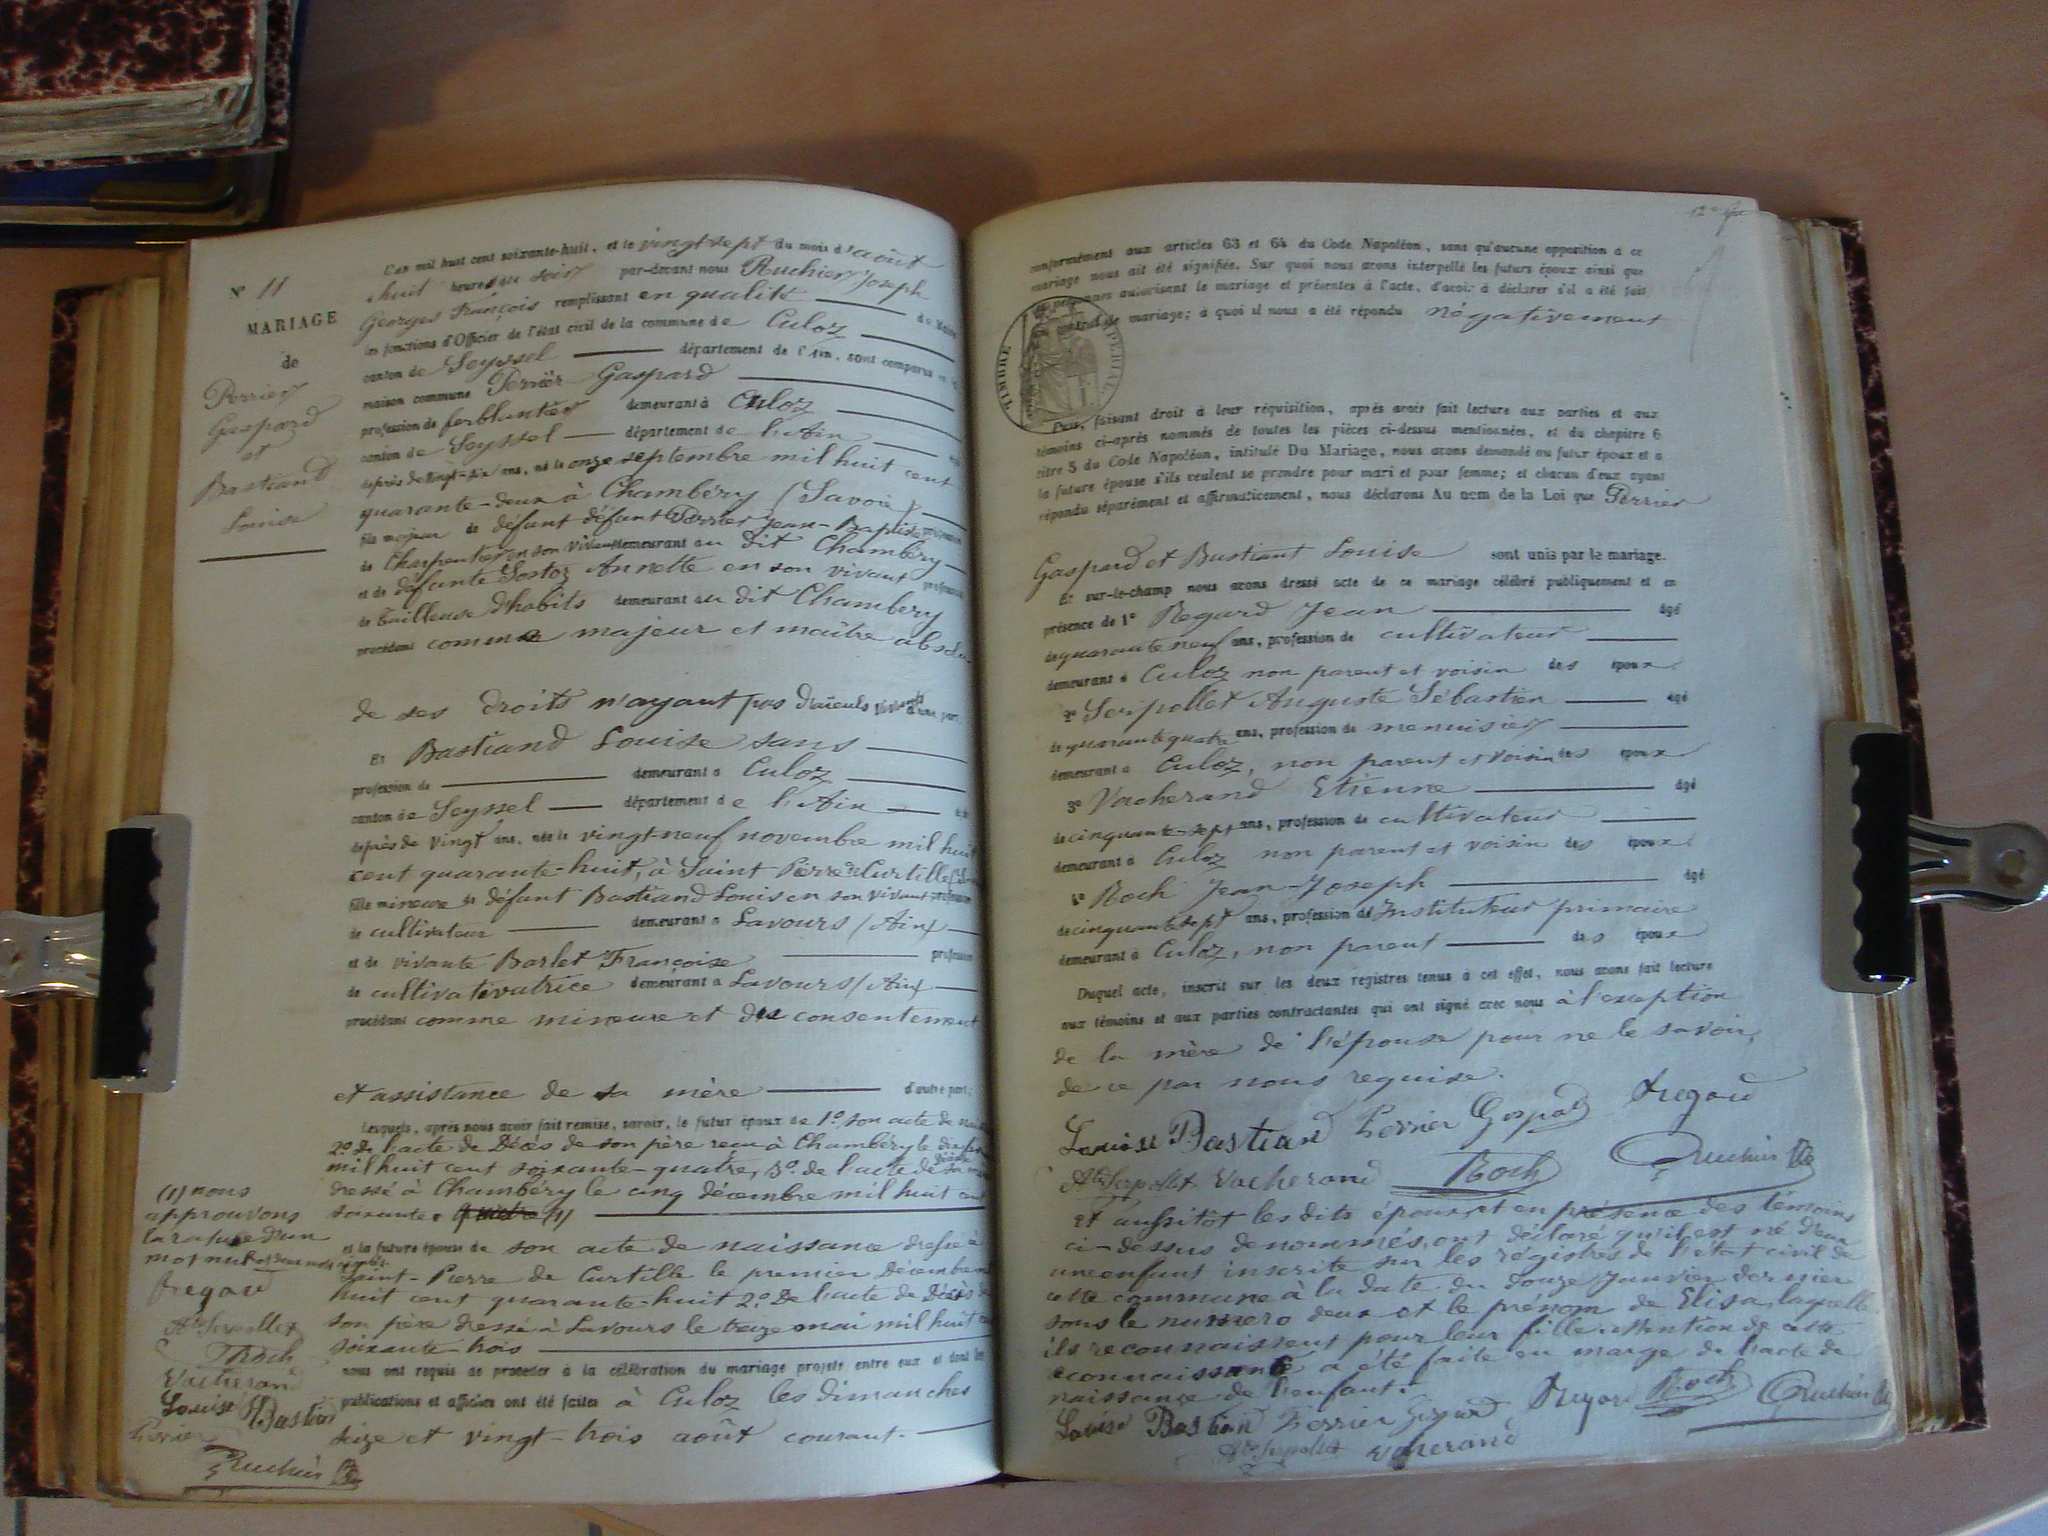 N° 11
MARIAGE
de
Perrier
Gaspard
et
Bastiand
Louise
L'an mil huit cent soixante-huit, et le vingt sept du mois d'août
à huit heures du soir par-devant nous Ruchier Joseph
Georges François remplissant en qualité de Maire
les fonctions d'Officier de l'état civil de la commune de Culoz
canton de Seyssel département de l'Ain, sont comparus en la
maison commune Perrier Gaspard
profession de ferblantier demeurant à Culoz
canton de Seyssel département de l'Ain
de près de vingt-six ans, né le onze septembre mil huit cent
quarante-deux à Chambéry (Savoie)
fils majeur de défunt défunt Perrier Jean-Baptiste profession
de Charpentier en son vivant demeurant au dit Chambéry
et de défunte Annette en son vivant profession
de tailleuse d'habits demeurant au dit Chambéry
procédant comme majeur et maître absolu
de ses droits n'ayant pas d'aïeuls vivants d'une part,
Et Bastiand Louise sans
profession de demeurant à Culoz
canton de Seyssel département de l'Ain
de près de vingt ans, née le vingt-neuf novembre mil huit
cent quarante-huit, à Saint Pierre de Curtille
fille mineure de défunt Bastiand Louis en son vivant profession
de cultivateur demeurant à Lavours (Ain)
et de vivante Barlet Françoise profession
de cultivativatrice demeurant à Lavours (Ain)
procédant comme mineure et du consentement
et assistance de sa mère d'autre part;
Lesquels, après nous avoir fait remise, savoir, le futur époux de 1°. son acte de
2°. De l'acte de Décès de son père reçu à Chambéry le
mil huit cent soixante-quatre, 3°. de l'acte de décès de sa mère
dressé à Chambéry le cinq décembre mil huit cent
soixante (1)
et la future épouse de son acte de naissance dressé à
Saint-Pierre de Curtille le premier Décembre
huit cent quarante-huit 2°. De l'acte de Décès de
son père dressé à Lavours le treize mai mil huit cent
soixante trois
nous ont requis de procéder à la célébration du mariage projeté entre eux et dont les
publications et affiches ont été faites à Culoz les dimanches
seize et vingt-trois août courant.
(1) nous
approuvons
la rature d'un
mot nul
Jregard
Ate Serpollet
JRoch
Vacherand
Louise Bastian
Perrier
Ruchier
conformément aux articles 63 et 64 du Code Napoléon, sans qu'aucune opposition à ce
mariage nous ait été signifiée. Sur quoi nous avons interpellé les futurs époux ainsi que
les personnes autorisant le mariage et présentes à l'acte, d'avoir à déclarer s'il a été fait
un contrat de mariage; à quoi il nous a été répondu négativement
TIMBRE IMPÉRIAL
Puis, faisant droit à leur réquisition, après avoir fait lecture aux parties et aux
témoins ci-après nommés de toutes les pièces ci-dessus mentionnées, et du chapitre 6
titre 5 du Code Napoléon, intitulé Du Mariage, nous avons demandé au futur époux et à
la future épouse s'ils veulent se prendre pour mari et pour femme; et chacun d'eux ayant
répondu séparément et affirmativement, nous déclarons Au nom de la Loi que Perrier
Gaspard et Bastiant Louise sont unis par le mariage.
Et sur-le-champ nous avons dressé acte de ce mariage célébré publiquement et en
présence de 1° Regard Jean âgé
de quarante neuf ans, profession de cultivateur
demeurant à Culoz non parent et voisin des époux
2° Serpollet Auguste Sébastien âgé
de quarante quatre ans, profession de menuisier
demeurant à Culoz, non parent et voisin des époux
3° Vacherand Etienne âgé
de cinquante-sept ans, profession de cultivateur
demeurant à Culoz non parent et voisin des époux
4° Roch Jean-Joseph âgé
de cinquante sept ans, profession d'Instituteur primaire
demeurant à Culoz, non parent des époux
Duquel acte, inscrit sur les deux registres tenus à cet effet, nous avons fait lecture
aux témoins et aux parties contractantes qui ont signé avec nous à l'exception
de la mère de l'épouse pour ne le savoir,
de ce par nous requise.
Louise Bastian Perrier Gaspard Jregard
Ate Serpollet Vacherand Roch Ruchier
et aussitôt les dits époux, et en présence des témoins
ci-dessus denommés, ont déclaré qu'il est né d'eux
un enfant inscrite sur les registres de l'état civil de
cette commune à la date du douze janvier dernier
sous le numero deux et le prénom de Elisa, laquelle
ils reconnaissent pour leur fille. Mention de cette
reconnaissance a été faite en marge de l'acte de
naissance de l'enfant.
Louise Bastian Perrier Gaspard Jregard Roch Ruchier
Ate Serpollet Vacherand